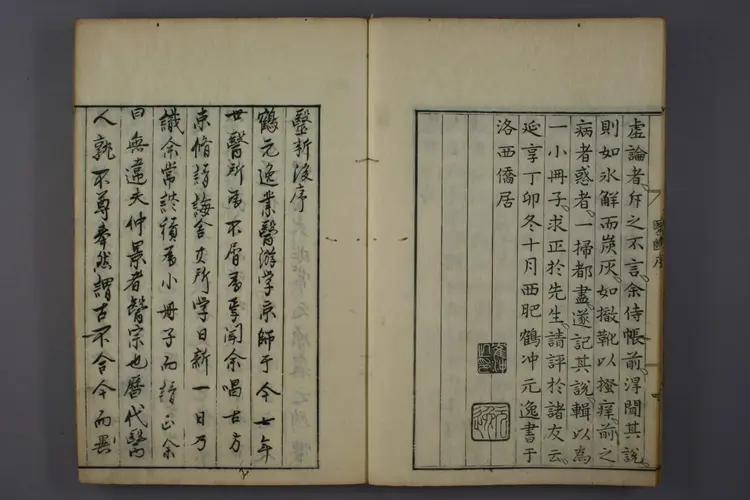 虛論者、斥之不言。余侍帳前、浮聞其說、
則如氷解而炭灰。如撤靴以搔痒、前之
病者惑者、一掃都盡、遂記其說、輯以為
一小冊子、求正於先生、請評於諸友云、
延享丁卯冬十月西肥鶴沖元逸書于
洛西僑居
毉斷後序
鶴元逸業醫游學京師于今七年
世醫所為不屑為焉聞余唱古方
束脩請誨舍其所學日新一日乃
識余常談積為小冊子而請正余
曰無違夫仲景者醫宗也曆代醫
人孰不尊奉然謂古不合今而異